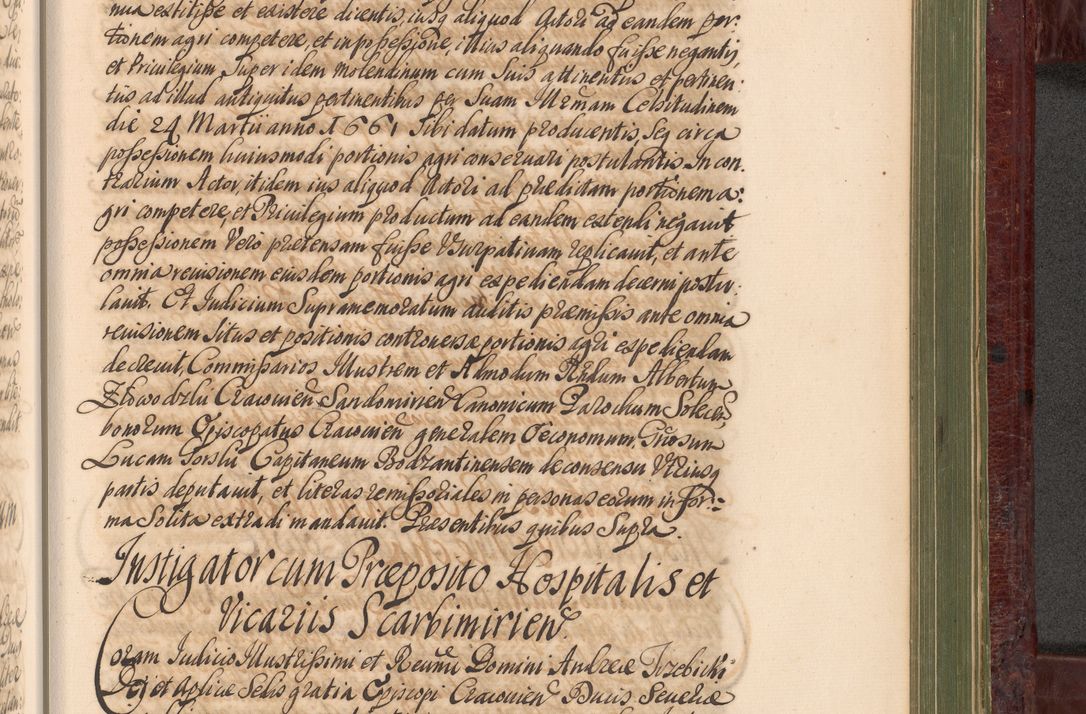 nua extitisse et existere dicentis, iusq aliquod Actori ad eandem por-
tionem agri competere, et in possessione illius aliquando fuisse negantis,
et Privilegium super idem molendinum cum suis attinentiis et pertinen-
tiis ad illud antiquitus pertinentibus per Suam Illrmam Celsitudinem
die 24 Martii anno 1661 sibi datum producentis, seq circa
possessionem huiusmodi portionis agri conservari postulantis. In con
trarium Actor, itidem ius aliquod Actori ad prædictam portionem a:
gri competere, et Privilegium productum ad eandem extendi negavit
possessionem vero prætensam fuisse usurpativam replicavit, et ante
omnia revisionem eiusdem portionis agri expediendam decerni postu:
lavit. Et Judicium Supramemoratum auditis præmissis ante omnia
revisionem situs et positionis controversæ portionis agri expediendam
decrevit, Commissarios Illustrem et Admodum Rndum Albertum
Zdowodzki Cracovien Sandomirien Canonicum Parochum Solecen
bonorum Episcopatus Cracovien generalem Oeconomum, Gnosum
Lucam Gorski Capitaneum Bodzantinensem de consensu utriusq
partis deputavit, et literas remissoriales in personas eorum in for:
ma solita extradi mandavit. Præsentibus quibus supra.
Instigator cum Præposito Hospitalis et
Vicariis Scarbimirien
Coram Judicio Illustrissimi et Reuñdi Domini Andreæ Trzebicki
Dei et Aplicæ Sedis gratia Episcopi Cracovien Ducis Severiæ